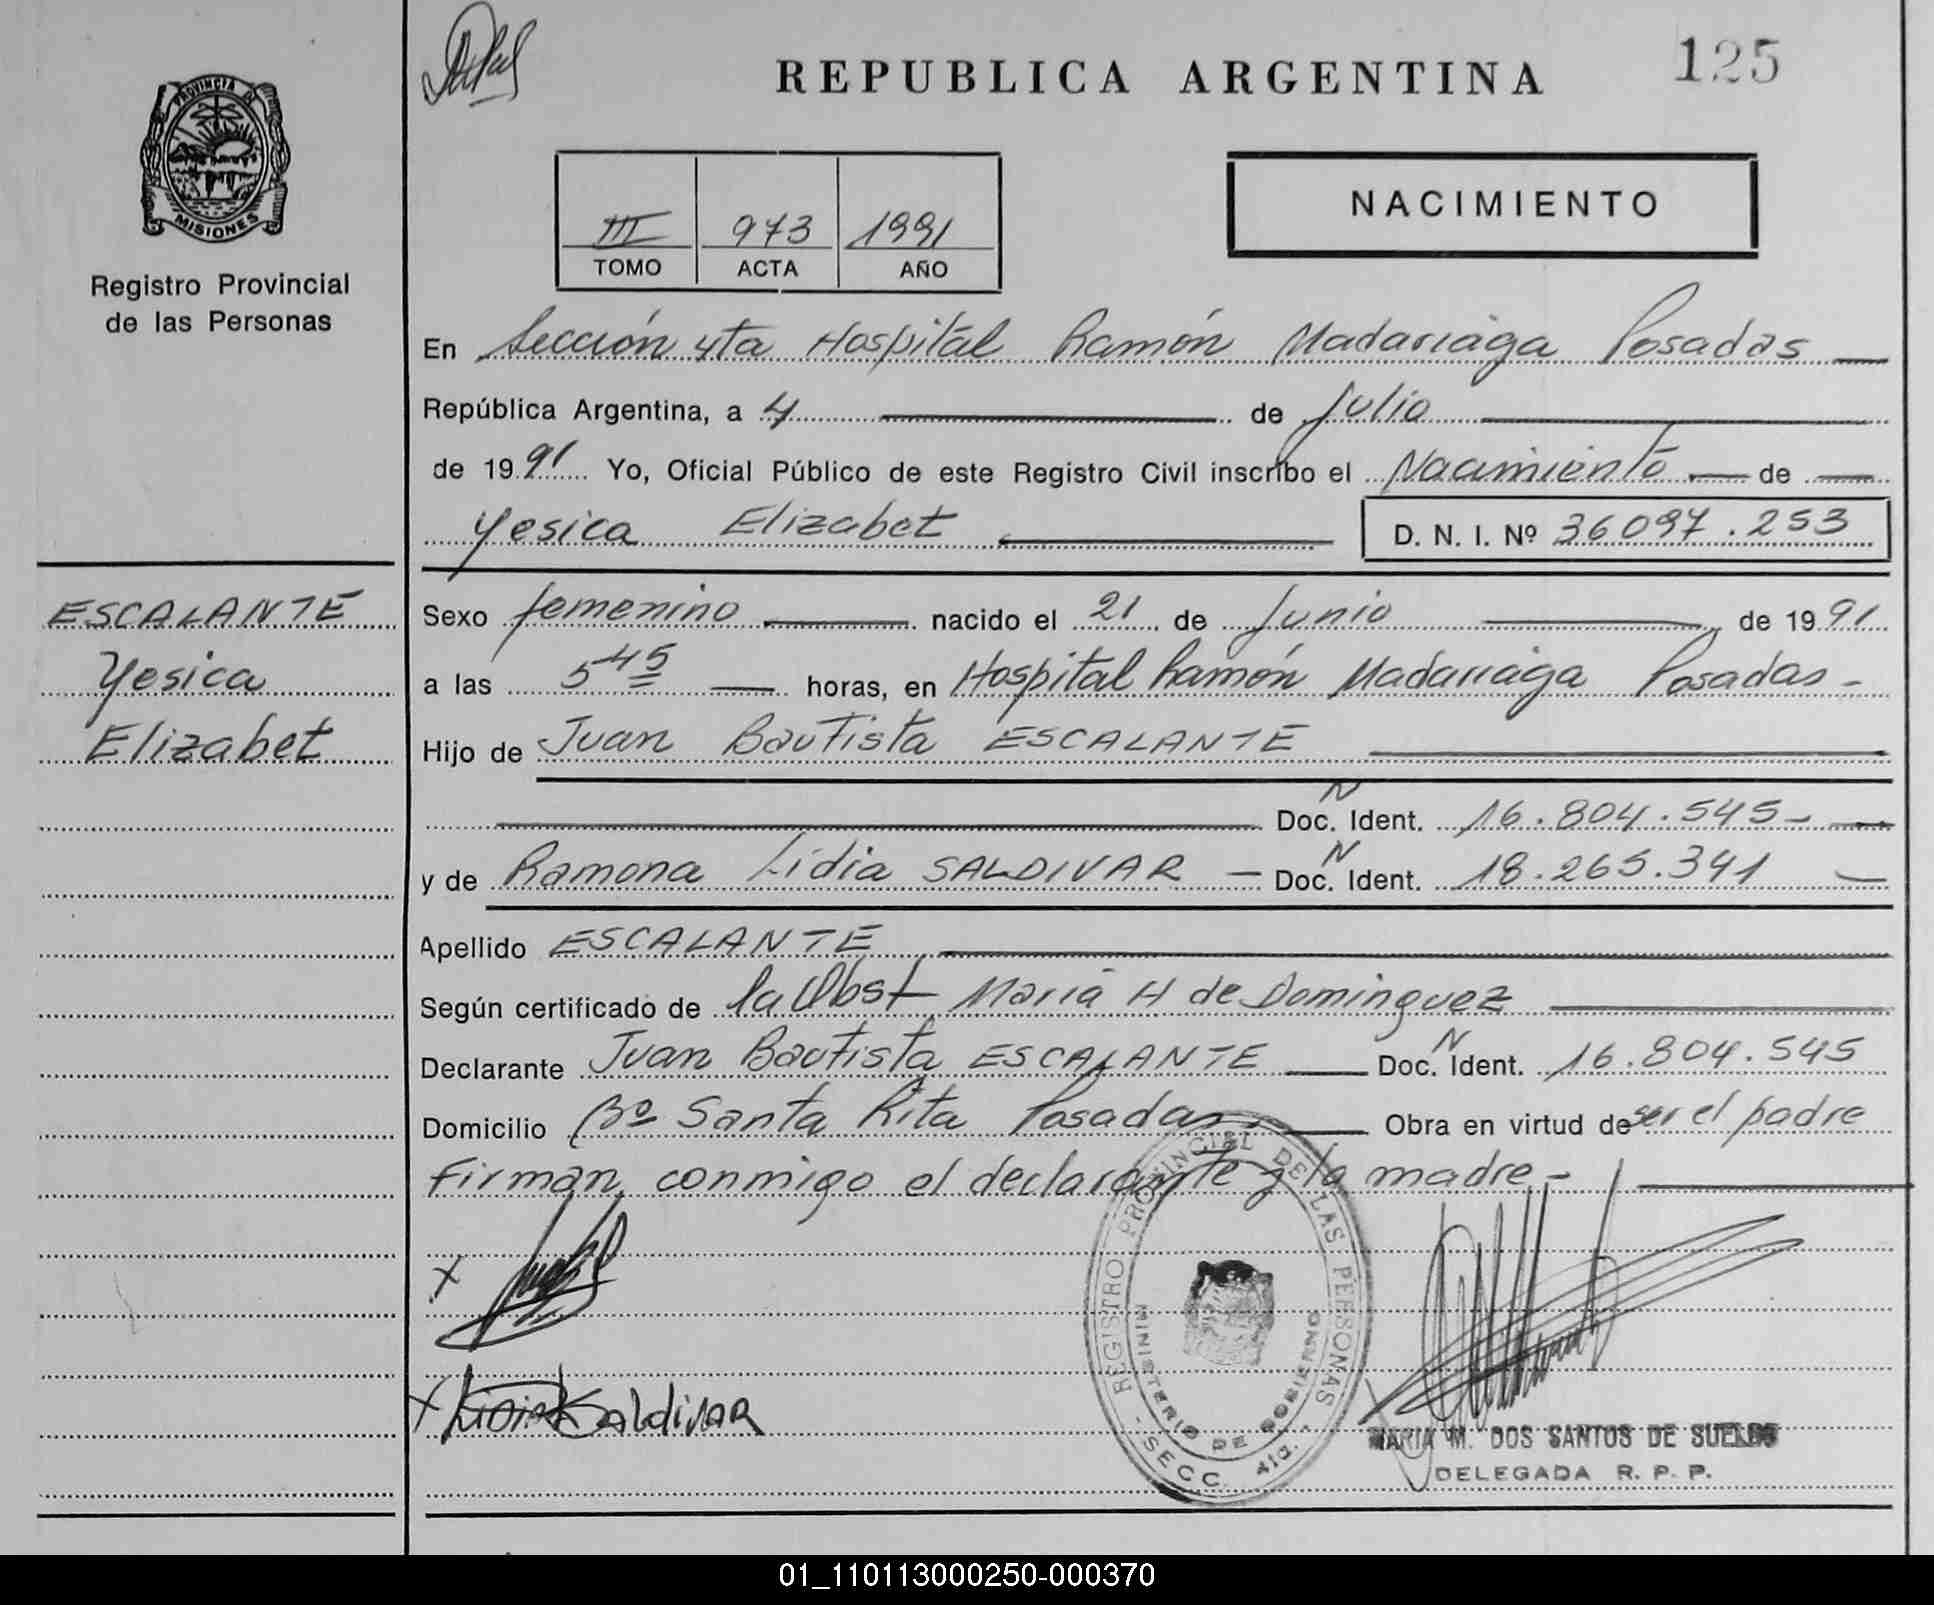 REPUBLICA ARGENTINA
125
PROVINCIA DE
MISIONES
Registro Provincial
de las Personas
III 973 1991
TOMO ACTA AÑO
NACIMIENTO
En Sección 4ta Hospital Ramón Madariaga Posadas
República Argentina, a 4 de Julio
de 1991 Yo, Oficial Público de este Registro Civil inscribo el Nacimiento de
Yesica Elizabet D. N. I. Nº 36097.253
ESCALANTE
Yesica
Elizabet
Sexo femenino nacido el 21 de Junio de 1991
a las 5 45 horas, en Hospital Ramón Madariaga Posadas-
Hijo de Juan Bautista ESCALANTE
N
Doc. Ident. 16.804.545-
y de Ramona Lidia SALDIVAR - Doc. N Ident. 18.265.341
Apellido ESCALANTE
Según certificado de la Obst María H de Dominguez
Declarante Juan Bautista ESCALANTE Doc. N Ident. 16.804.545
Domicilio Bº Santa Rita Posadas Obra en virtud de ser el padre
Firman conmigo el declarante y la madre-
X
X Lidia Saldivar
REGISTRO PROVINCIAL DE LAS PERSONAS
MINISTERIO DE GOBIERNO
- SECC. 4ta. -
MARIA M. DOS SANTOS DE SUELDO
DELEGADA R. P. P.
01_110113000250-000370